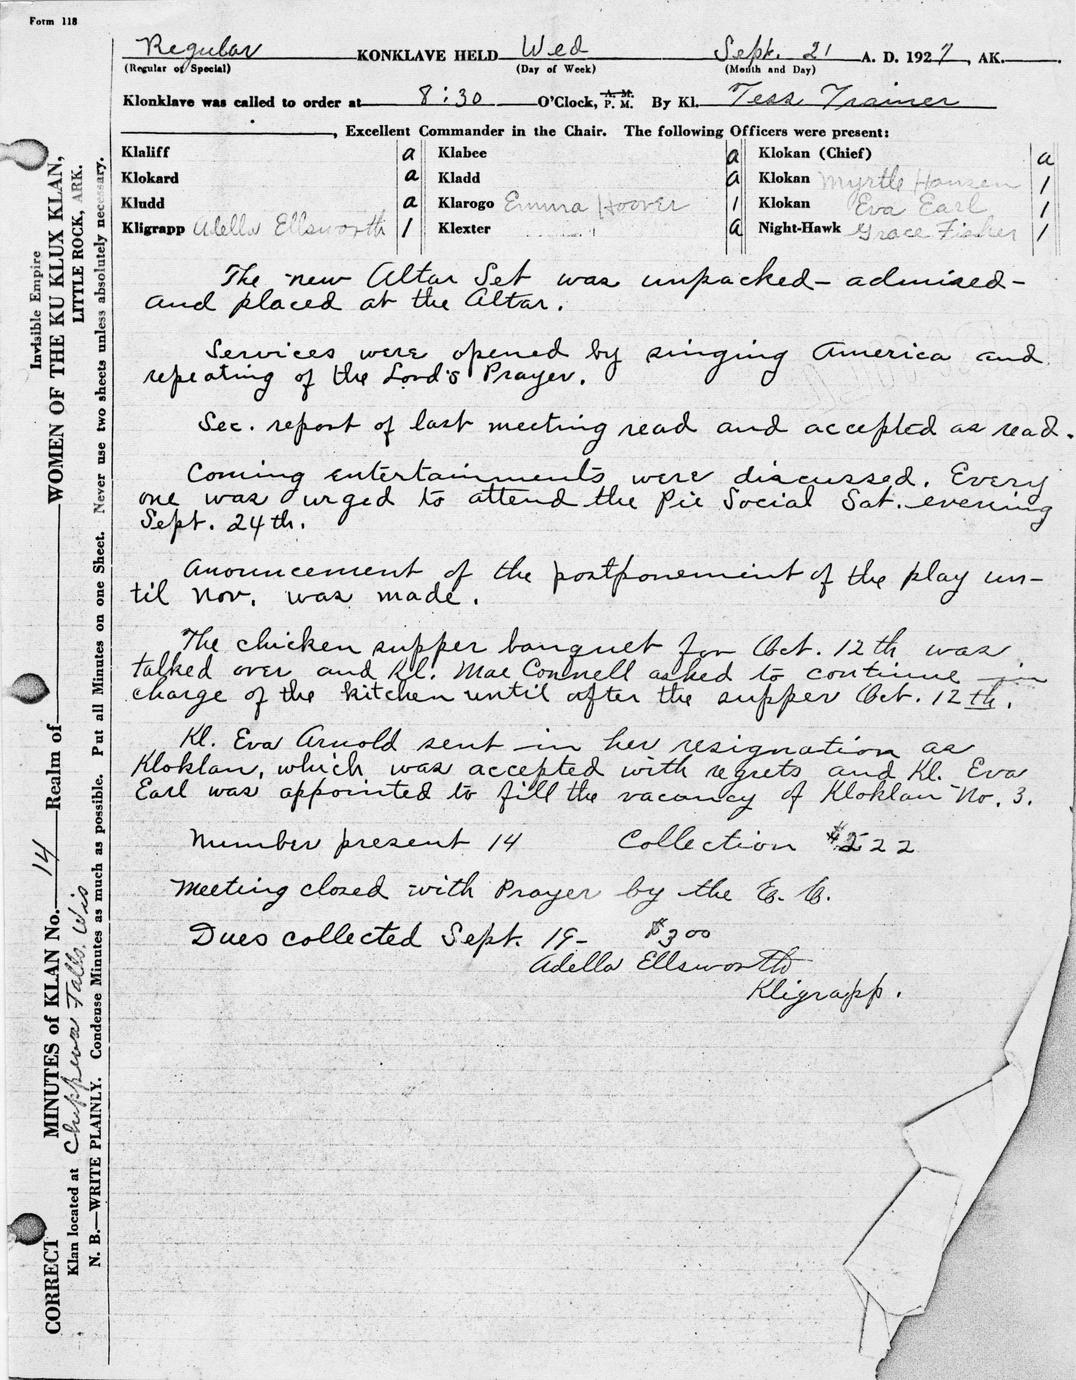 Form 118
Regular KONKLAVE HELD Wed Sept. 21 A. D. 1927, AK.
(Regular of Special) (Day of Week) (Month and Day)
Klonklave was called to order at 8:30 O'Clock, A. M. P. M. By Kl. Tess Trainer
, Excellent Commander in the Chair. The following Officers were present:
Klaliff a Klabee a Klokan (Chief) a
Klokard a Kladd a Klokan Myrtle Hansen 1
Kludd a Klarogo Emma Hoover 1 Klokan Eva Earl 1
Kligrapp Adella Ellsworth 1 Klexter a Night-Hawk Grace Fisher 1
The new Altar Set was unpacked - admired -
and placed at the Altar.
Services were opened by singing America and
repeating of the Lord's Prayer.
Sec. report of last meeting read and accepted as read.
Coming entertainments were discussed. Every
one was urged to attend the Pie Social Sat. evening
Sept. 24th.
Anouncement of the postponement of the play un-
til Nov. was made.
The chicken supper banquet for Oct. 12th was
talked over and Kl. Mae Connell asked to continue in
charge of the kitchen until after the supper Oct. 12th.
Kl. Eva Arnold sent in her resignation as
Kloklan, which was accepted with regrets and Kl. Eva
Earl was appointed to fill the vacancy of Kloklan No. 3.
Number present 14 Collection $2 22
Meeting closed with Prayer by the E. C.
Dues collected Sept. 19- $3 00
Adella Ellsworth
Kligrapp.
CORRECT MINUTES of KLAN No. 14 Realm of WOMEN OF THE KU KLUX KLAN,
Invisible Empire
LITTLE ROCK, ARK.
Klan located at Chippewa Falls, Wis
N. B.—WRITE PLAINLY. Condense Minutes as much as possible. Put all Minutes on one Sheet. Never use two sheets unless absolutely necessary.